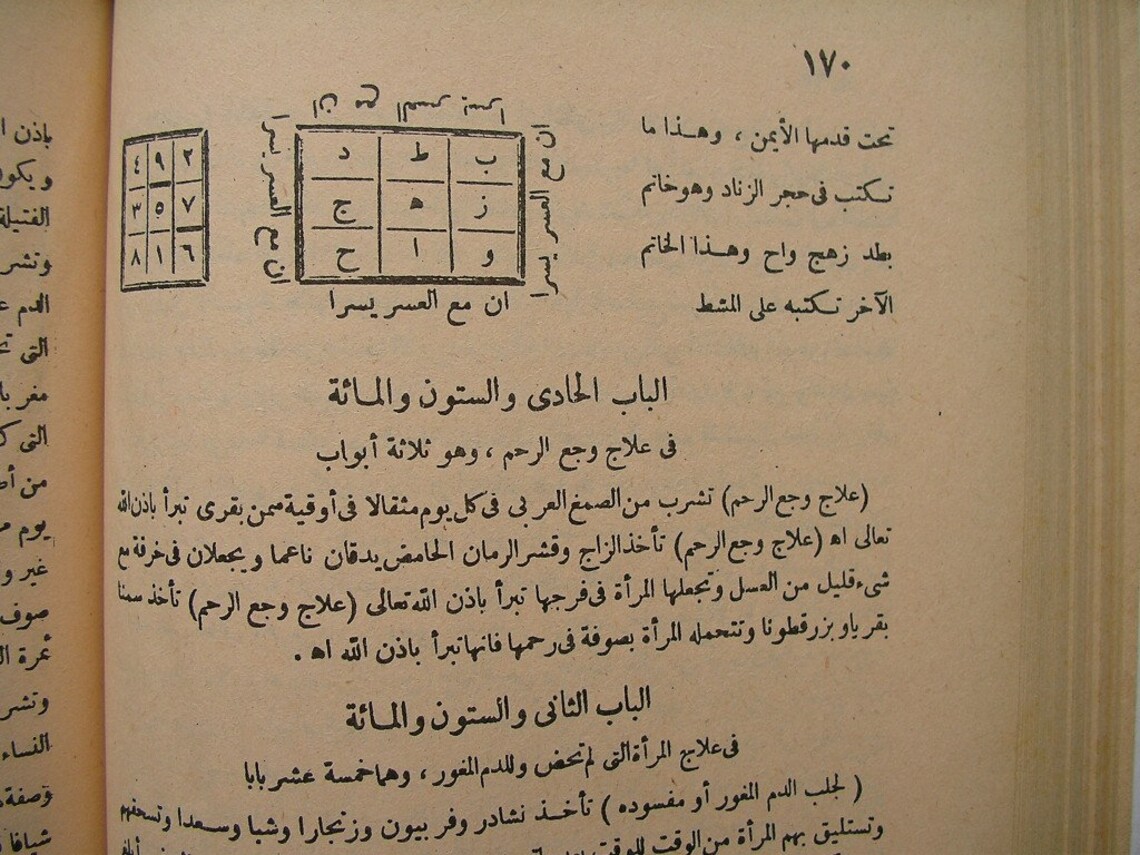 ١٧٠
تحت قدمها الأيمن ، وهـذا ما
تـكتب فى حجر الزناد وهو خاتم
بطد زهج واح وهـذا الخاتم
الآخر تـكتبه على المشط
ان مع العسر يسرا
ان مع العسر يسرا
ب ط د
ز ه ج
و ا ح
ان مع العسر يسرا
ان مع العسر يسرا
٢ ٩ ٤
٧ ٥ ٣
٦ ١ ٨
الباب الحادى والستون والمـائة
فى علاج وجع الرحم ، وهو ثلاثة أبواب
(علاج وجع الرحم) تشرب من الصمغ العربى فى كل يوم مثقالا فى أوقية سمن بقرى تبرأ باذن الله
تعالى اه (علاج وجع الرحم) تأخذ الزاج وقشر الرمان الحامض يدقان ناعما ويجعلان فى خرقة مع
شىء قليل من العسل وتجعلها المرأة فى فرجها تبرأ باذن الله تعالى (علاج وجع الرحم) تأخذ سمنا
بقريا وبزر قطونا وتتحمله المرأة بصوفة فى رحمها فانها تبرأ باذن الله اه .
الباب الثانى والستون والمـائة
فى علاج المرأة التى لم تحض وللدم المغور ، وهما خمسة عشر بابا
( لجلب الدم المغور أو مفسوده ) تأخـذ نشادر وفربيون وزنجارا وشبا وسـعدا وتسحقهم
وتستليق بهم المرأة من الوقت للوقت
باذن
الفتيلة
وتشر
الدم
التى
من
يوم
صوف
وتشر
النساء